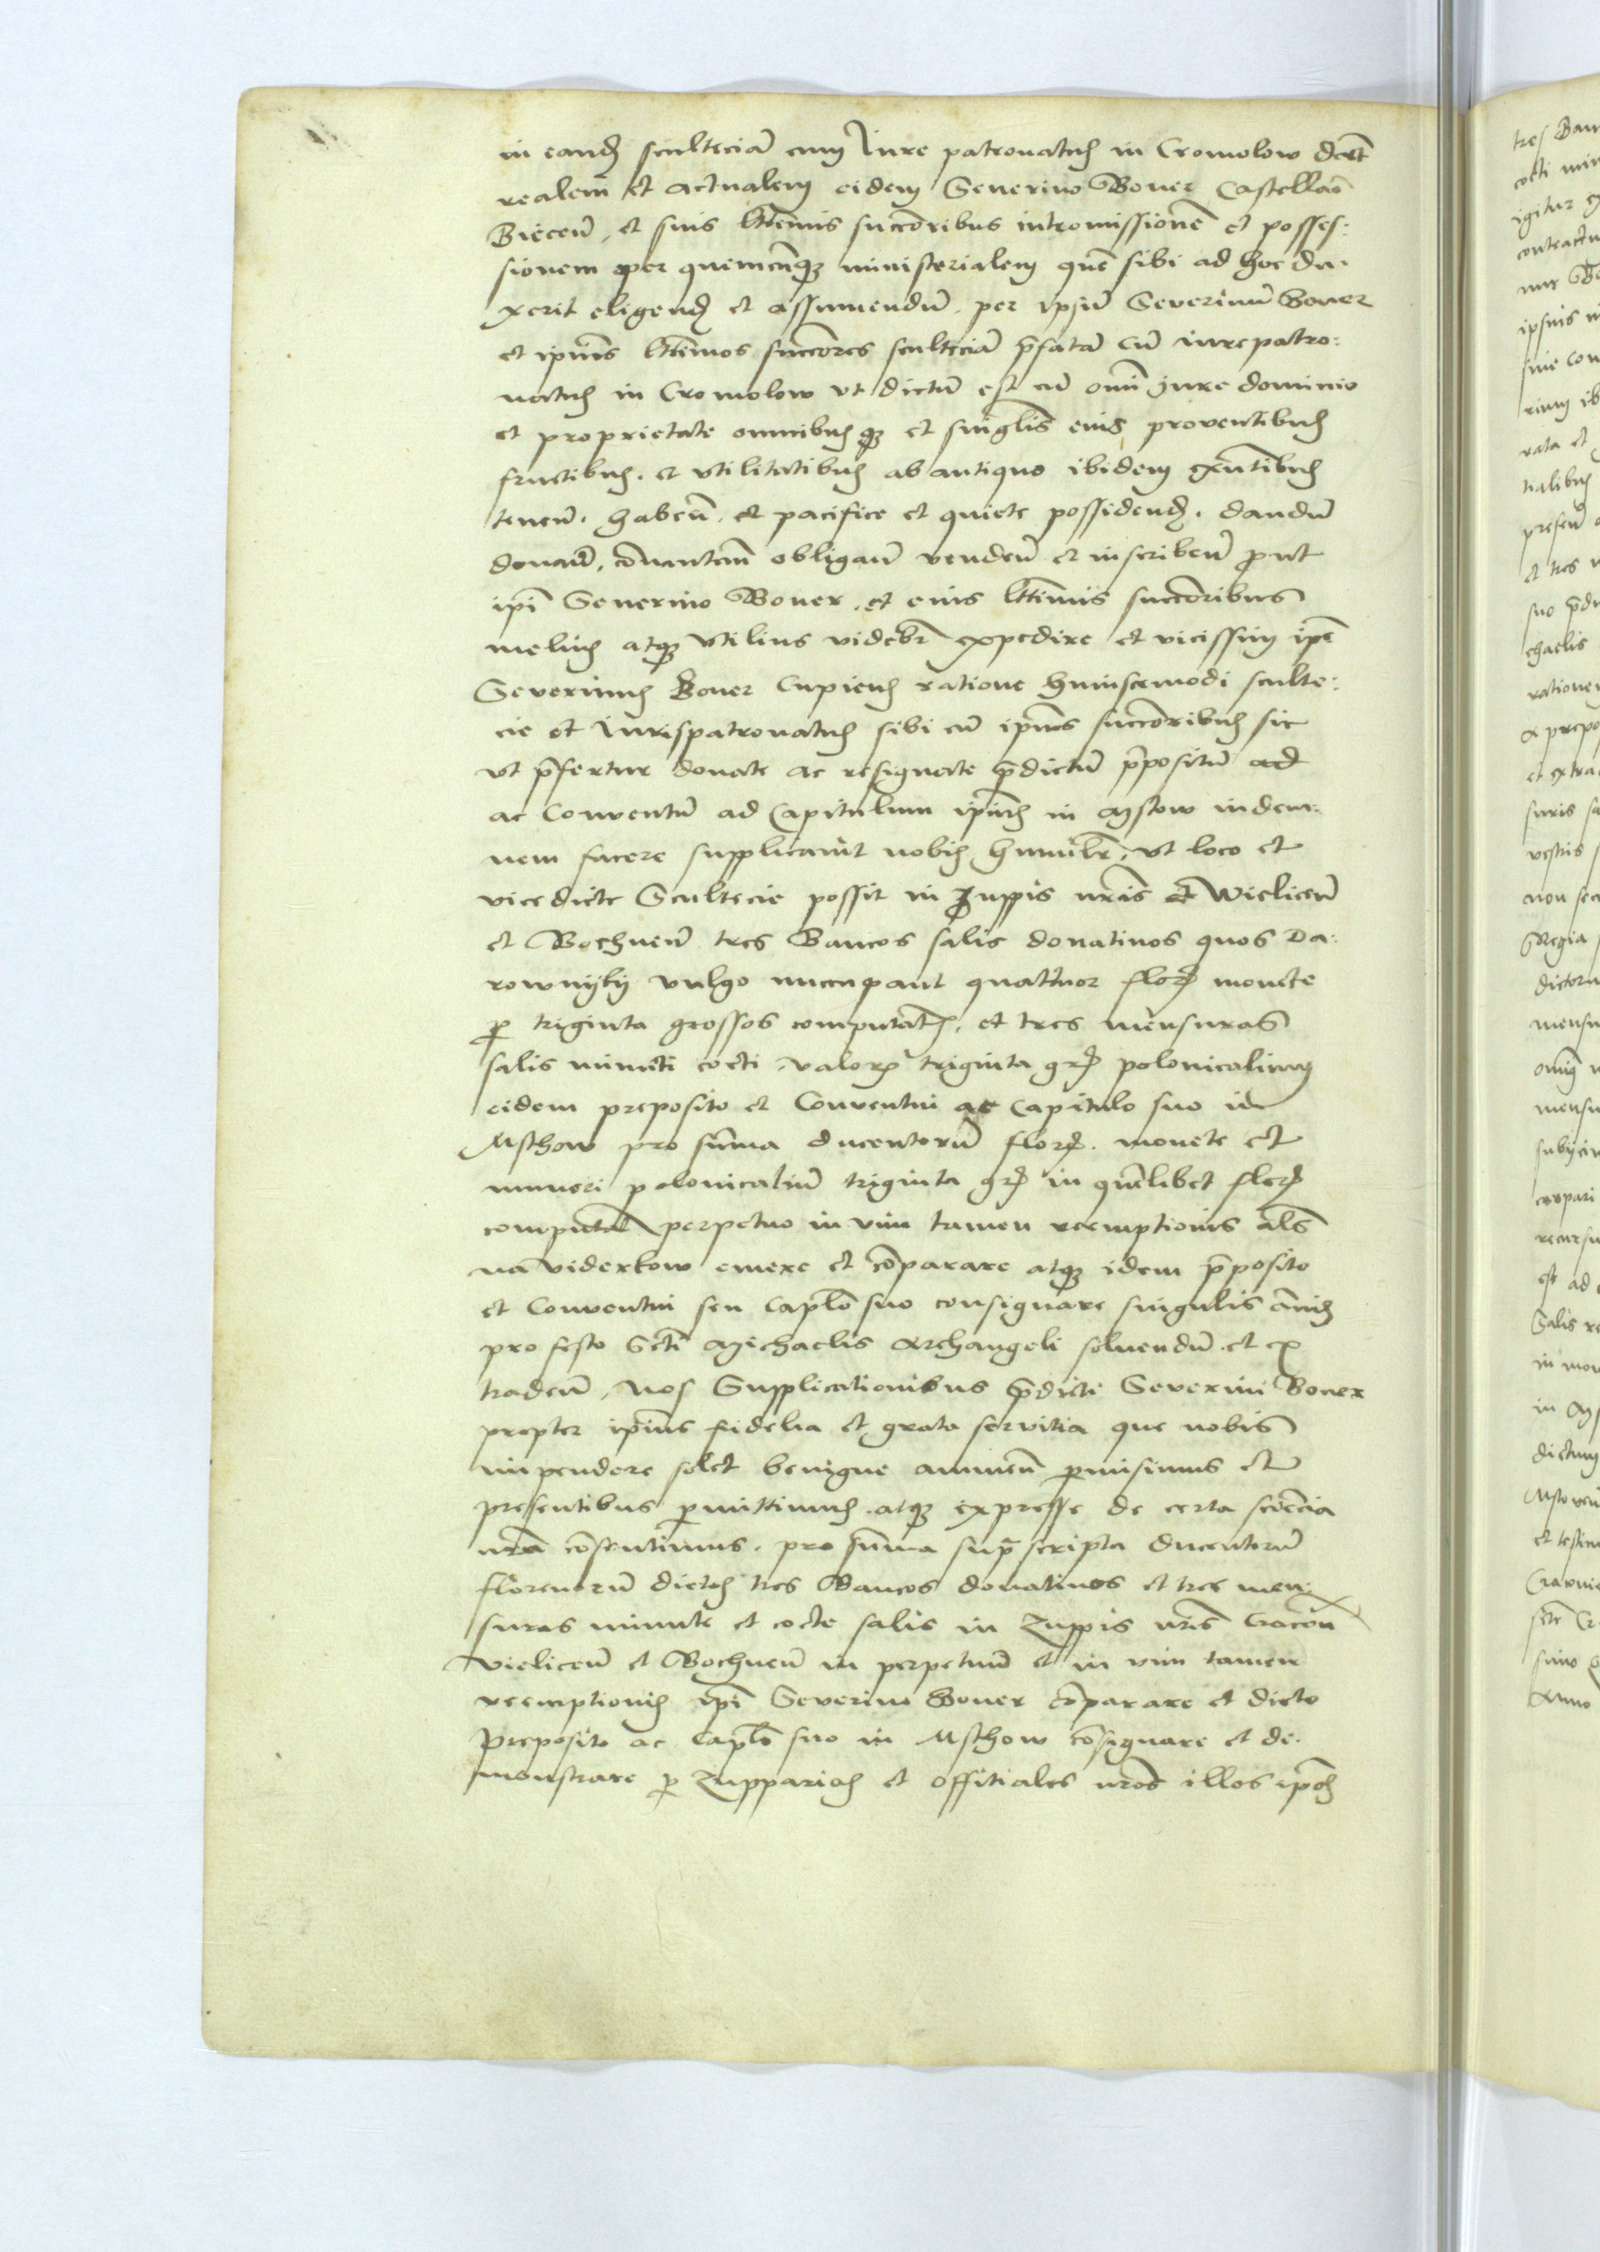 in eand scultecia cum Iure patronatus in Cromolow dedit
realem et actualem eidem Severino Boner Castellano
Biecen, et suis lttimis succoribus intromissionem et posses:
sionem per quemcumq ministerialem quem sibi ad hoc du.
xerit eligend et assumendum, per ipsum Severinum Boner
et ipius lttimos succores scultecia pfatam cum iure patro:
natus in Cromolow ut dictum est cum omni jure dominio
et proprietate omnibus q et singlis eius proventibus
fructibus, et utilitatibus ab antiquo ibidem exntibus
tenen. haben. et pacifice et quiete possidend. dandum
donan, comutan obligan venden et inscriben prout
ipi Severino Boner, et eius lttimis succoribus
melius atq utilius videbr expedire et vicissim ipe
Severinus Boner cupiens ratione huiuscemodi sculte:
cie et Iurispatronatus sibi cum ipius succoribus sic
ut pfertur donate ac resignate pdictum ppositum ad
ac Conventum ad Capitulum ipius in Mstow indem:
nem facere supplicavit nobis humilr, ut loco et
vice dicte Scultecie possit in Zuppis nris et Wielicen
et Bochnen tres Bancos salis donativos quos Da:
rownyky vulgo nuccupant quattuor flor monete
p triginta grossos computat, et tres mensuras
salis minuti cocti, valor triginta gr polonicalium
eidem preposito et Conventui ac Capitulo suo in
Msthow pro summa ducentorum flor. monete et
numeri polonicalium triginta gr in quelibet flor
computan perpetuo in vim tamen reemptionis als
na viderkow emere et comparare atq idem pposito
et Conventui seu Caplo suo consignare singulis annis
pro festo Scti Michaelis Archangeli solvendum, et ex
traden, nos Supplicationibus pdicti Severini Boner
propter ipius fidelia et grata servitia que nobis
impendere solet benigne annuen pmisimus et
presentibus pmittimus, atq expresse de certa sciencia
nra consentimus, pro summa supra scripta ducentorum
florenorum dictos tres Bancos donativos et tres men:
suras minute et cocte salis in Zuppis nris Cracon
Vielicen et Bochnen in perpetuum et in vim tamen
reemptionis ipi Severino Boner comparare et dicto
Preposito ac Caplo suo in Msthow consignare et de.
monstrare p Zupparios et offitiales nros illos ipos